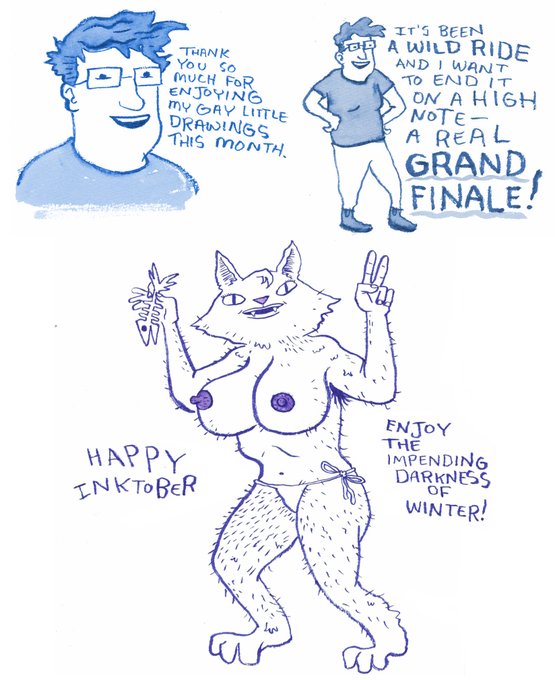 THANK
YOU SO
MUCH FOR
ENJOYING
MY GAY LITTLE
DRAWINGS
THIS MONTH.
IT'S BEEN
A WILD RIDE
AND I WANT
TO END IT
ON A HIGH
NOTE—
A REAL
GRAND
FINALE!
HAPPY
INKTOBER
ENJOY
THE
IMPENDING
DARKNESS
OF
WINTER!